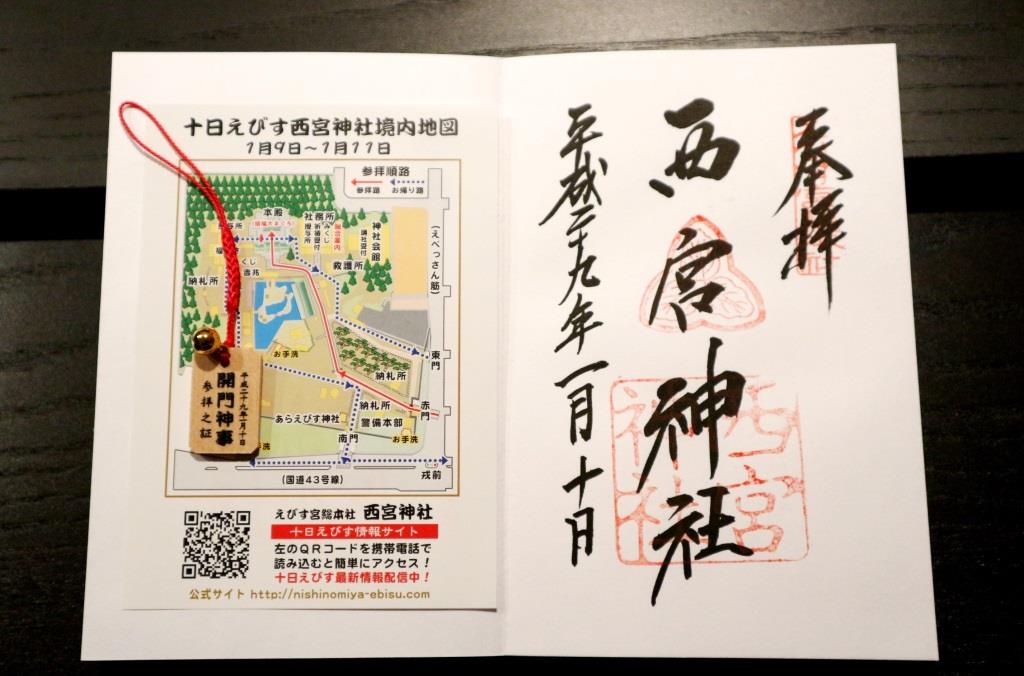 十日えびす西宮神社境内地図
1月9日～1月11日
参拝順路
参拝路
お帰り路
本殿
社務所
神社会館
救護所
納札所
(えべっさん筋)
お手洗
東門
納札所
納札所
赤門
あらえびす神社
警備本部
お手洗
南門
戎前
(国道43号線)
平成二十九年一月十日
開門神事
参拝之証
えびす宮総本社 西宮神社
十日えびす情報サイト
左のQRコードを携帯電話で
読み込むと簡単にアクセス！
十日えびす最新情報配信中！
公式サイト http://nishinomiya-ebisu.com
奉拝
西宮神社
西宮
神社
平成二十九年一月十日